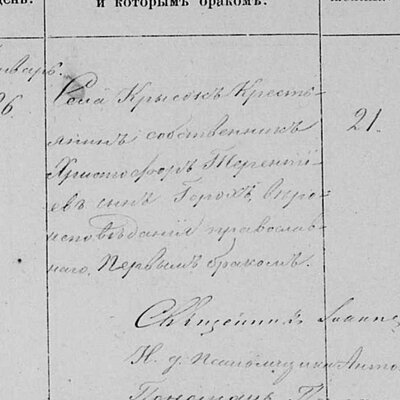 день.
и которымъ бракомъ.
Январь.
26.
Села Крысокъ Кресть-
янинъ собственникъ
Христофоръ Терентiй-
евъ сынъ Горохъ, вѣро-
исповѣданiя православ-
наго, первымъ бракомъ.
21.
Священникъ Iоаннъ
И. д. псаломщика Анто
Пономарь